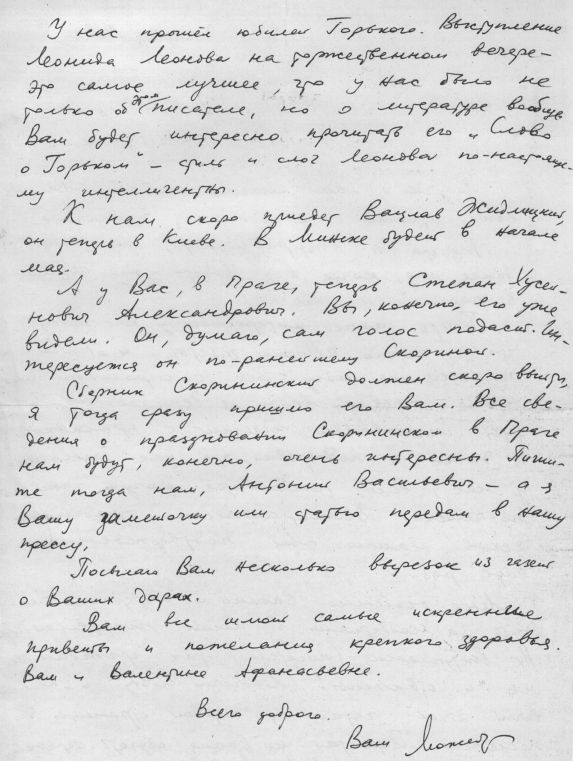 У нас прошёл юбилей Горького. Выступление
Леонида Леонова на торжественном вечере –
это самое лучшее, что у нас было не
только об этом писателе, но о литературе вообще
Вам будет интересно прочитать его „Слово
о Горьком" – стиль и слог Леонова по-настояще-
му интеллигентны.
К нам скоро приедет Вацлав Жидлицкий,
он теперь в Киеве. В Минске будет в начале
мая.
А у Вас, в Праге, теперь Степан Хусеи-
нович Александрович. Вы, конечно, его уже
видели. Он, думаю, сам голос подаст. Ин-
тересуется он по-раннейшему Скориной.
Сборник Скорининский должен скоро выйти,
я тогда сразу пришлю его Вам. Все све-
дения о праздновании Скорининском в Праге
нам будут, конечно, очень интересны. Пиши-
те тогда нам, Антоний Васильевич – а я
Вашу заметочку или статью передам в нашу
прессу.
Посылаю Вам несколько вырезок из газет
о Ваших дарах.
Вам все шлют самые искренние
приветы и пожелания крепкого здоровья.
Вам и Валентине Афанасьевне.
Всего доброго.
Ваш